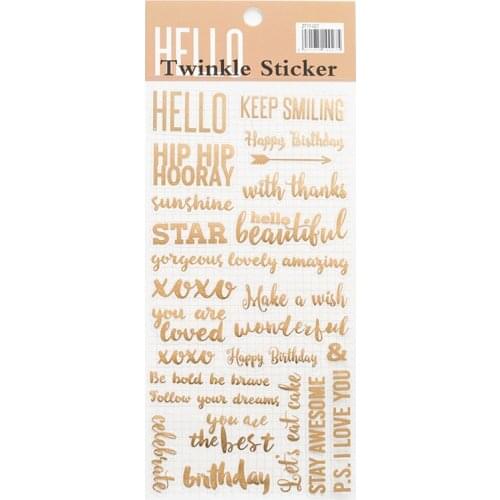 HELLO
Twinkle Sticker
HELLO
KEEP SMILING
Happy Birthday
HIP HIP
HOORAY
with thanks
sunshine
hello
STAR
beautiful
gorgeous lovely amazing
xoxo
Make a wish
you are
loved
wonderful
xoxo
Happy Birthday
&
Be bold be brave
Follow your dreams
you are
the best
birthday
celebrate
Let's eat cake
STAY AWESOME
P.S. I LOVE YOU